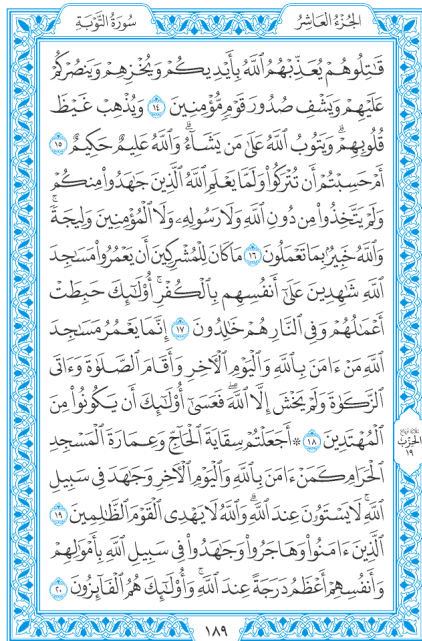 سُورَةُ التَّوْبَةِ
الجُزْءُ العَاشِرُ
قَٰتِلُوهُمْ يُعَذِّبْهُمُ ٱللَّهُ بِأَيْدِيكُمْ وَيُخْزِهِمْ وَيَنصُرْكُمْ
عَلَيْهِمْ وَيَشْفِ صُدُورَ قَوْمٍ مُّؤْمِنِينَ ١٤ وَيُذْهِبْ غَيْظَ
قُلُوبِهِمْ ۗ وَيَتُوبُ ٱللَّهُ عَلَىٰ مَن يَشَآءُ ۗ وَٱللَّهُ عَلِيمٌ حَكِيمٌ ١٥
أَمْ حَسِبْتُمْ أَن تُتْرَكُوا۟ وَلَمَّا يَعْلَمِ ٱللَّهُ ٱلَّذِينَ جَٰهَدُوا۟ مِنكُمْ
وَلَمْ يَتَّخِذُوا۟ مِن دُونِ ٱللَّهِ وَلَا رَسُولِهِۦ وَلَا ٱلْمُؤْمِنِينَ وَلِيجَةً ۚ
وَٱللَّهُ خَبِيرٌۢ بِمَا تَعْمَلُونَ ١٦ مَا كَانَ لِلْمُشْرِكِينَ أَن يَعْمُرُوا۟ مَسَٰجِدَ
ٱللَّهِ شَٰهِدِينَ عَلَىٰٓ أَنفُسِهِم بِٱلْكُفْرِ ۚ أُو۟لَٰٓئِكَ حَبِطَتْ
أَعْمَٰلُهُمْ وَفِى ٱلنَّارِ هُمْ خَٰلِدُونَ ١٧ إِنَّمَا يَعْمُرُ مَسَٰجِدَ
ٱللَّهِ مَنْ ءَامَنَ بِٱللَّهِ وَٱلْيَوْمِ ٱلْءَاخِرِ وَأَقَامَ ٱلصَّلَوٰةَ وَءَاتَى
ٱلزَّكَوٰةَ وَلَمْ يَخْشَ إِلَّا ٱللَّهَ ۖ فَعَسَىٰٓ أُو۟لَٰٓئِكَ أَن يَكُونُوا۟ مِنَ
ٱلْمُهْتَدِينَ ١٨ ۞ أَجَعَلْتُمْ سِقَايَةَ ٱلْحَآجِّ وَعِمَارَةَ ٱلْمَسْجِدِ
ٱلْحَرَامِ كَمَنْ ءَامَنَ بِٱللَّهِ وَٱلْيَوْمِ ٱلْءَاخِرِ وَجَٰهَدَ فِى سَبِيلِ
ٱللَّهِ ۚ لَا يَسْتَوُۥنَ عِندَ ٱللَّهِ ۗ وَٱللَّهُ لَا يَهْدِى ٱلْقَوْمَ ٱلظَّٰلِمِينَ ١٩
ٱلَّذِينَ ءَامَنُوا۟ وَهَاجَرُوا۟ وَجَٰهَدُوا۟ فِى سَبِيلِ ٱللَّهِ بِأَمْوَٰلِهِمْ
وَأَنفُسِهِمْ أَعْظَمُ دَرَجَةً عِندَ ٱللَّهِ ۚ وَأُو۟لَٰٓئِكَ هُمُ ٱلْفَآئِزُونَ ٢٠
الحِزْب
١٩
١٨٩